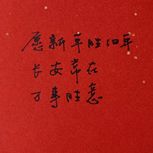 愿新年胜旧年
长安常在
万事胜意